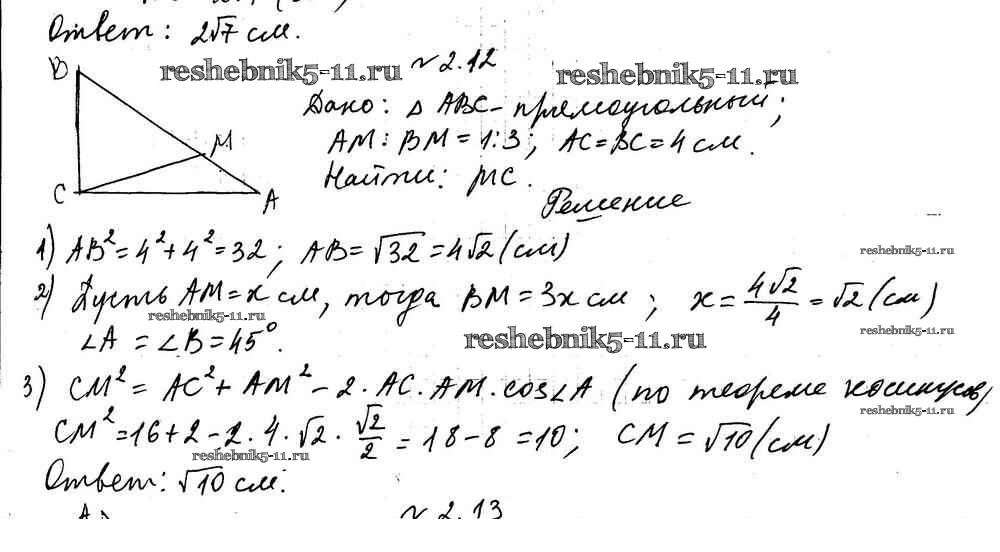 Ответ: 2√7 см.
№ 2.12
reshebnik5-11.ru reshebnik5-11.ru
B
M
C
A
Дано: △ ABC - прямоугольный;
AM : BM = 1:3; AC = BC = 4 см.
Найти: MC.
Решение
1) AB² = 4² + 4² = 32; AB = √32 = 4√2 (см)
reshebnik5-11.ru
2) Пусть AM = x см, тогда BM = 3x см; x = 4√2/4 = √2 (см)
reshebnik5-11.ru reshebnik5-11.ru
∠A = ∠B = 45°.
reshebnik5-11.ru
3) CM² = AC² + AM² - 2 · AC · AM · cos∠A (по теореме косинусов)
reshebnik5-11.ru
CM² = 16 + 2 - 2 · 4 · √2 · √2/2 = 18 - 8 = 10; CM = √10 (см)
reshebnik5-11.ru
Ответ: √10 см.
A
№ 2.13